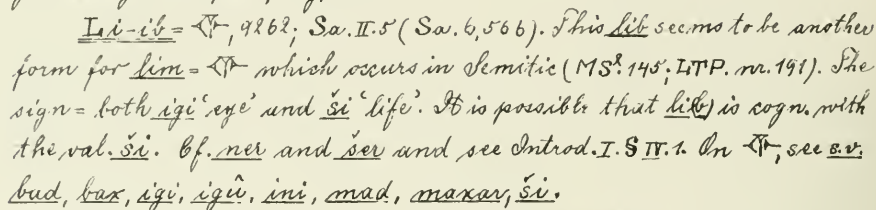 Li-ib = 𒅆, 9262; Sa. II. 5 (Sa. 6, 566). This lib seems to be another
form for lim = 𒅆 which occurs in Semitic (MSl. 145; LTP. nr. 191). The
sign = both igi 'eye' und ši 'life'. It is possible that lib) is cogn. with
the val. ši. Cf. ner and šer and see Introd. I. § IV. 1. On 𒅆, see s.v.
bad, bax, igi, igû, ini, mad, maxar, ši.